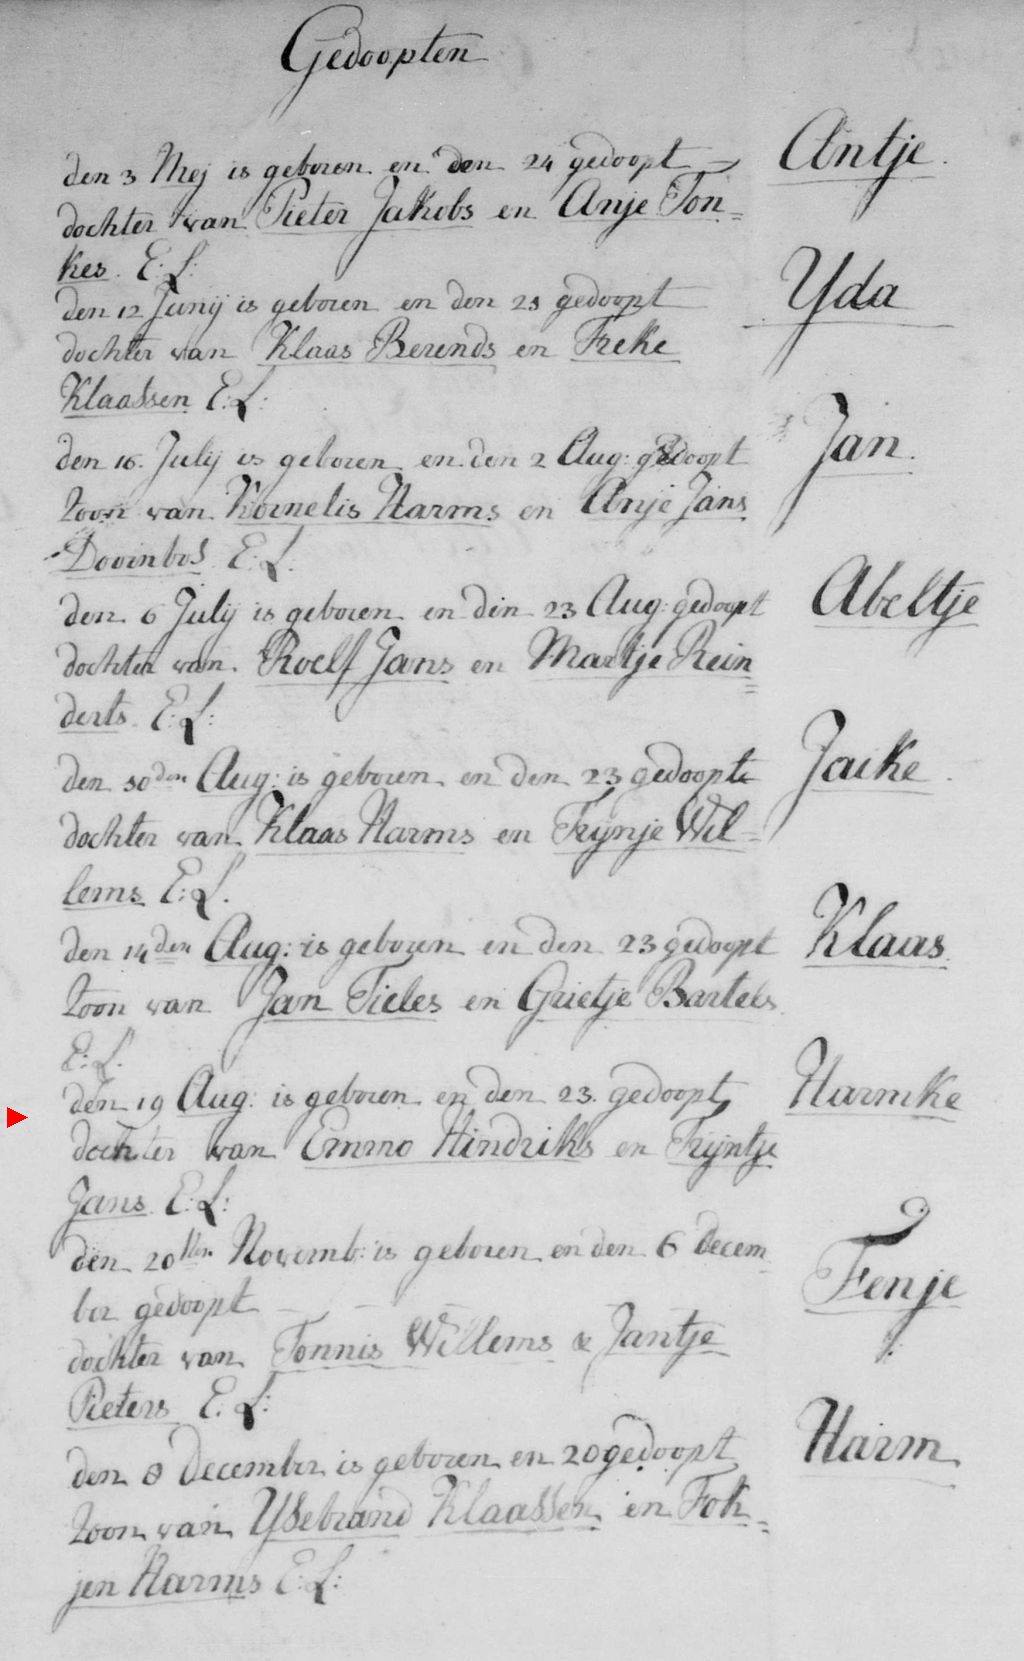 Gedoopten
den 3 Mej is geboren en den 24 gedoopt Antje.
dochter van Pieter Jakobs en Anje Ton=
kes. E: L:
den 12 Junij is geboren en den 23 gedoopt Yda
dochter van Klaas Berends en Freke
Klaassen E: L:
den 16. Julij is geboren en den 2 Aug: gedoopt Jan.
zoon van Kornelis Harms en Anje Jans
Doornbos E: L.
den 6 Julij is geboren en den 23 Aug: gedoopt Abeltje
dochter van Roelf Jans en Martje Rein=
derts E: L:
den 10den Aug: is geboren en den 23 gedoopt Jaike.
dochter van Klaas Harms en Trijnje Wil=
lems E: L.
den 14den Aug: is geboren en den 23 gedoopt Klaas
zoon van Jan Tieles en Grietje Bartels
E: L.
den 19 Aug: is geboren en den 23. gedoopt Harmke
dochter van Emmo Hindriks en Trijntje
Jans E: L:
den 20sten Novemb: is geboren en den 6 Decem Fenje
ber gedoopt
dochter van Tonnis Willems & Jantje
Pieters E. L:
den 8 December is geboren en 20 gedoopt Harm
zoon van Ysebrand Klaassen en Fok=
jen Harms E: L: